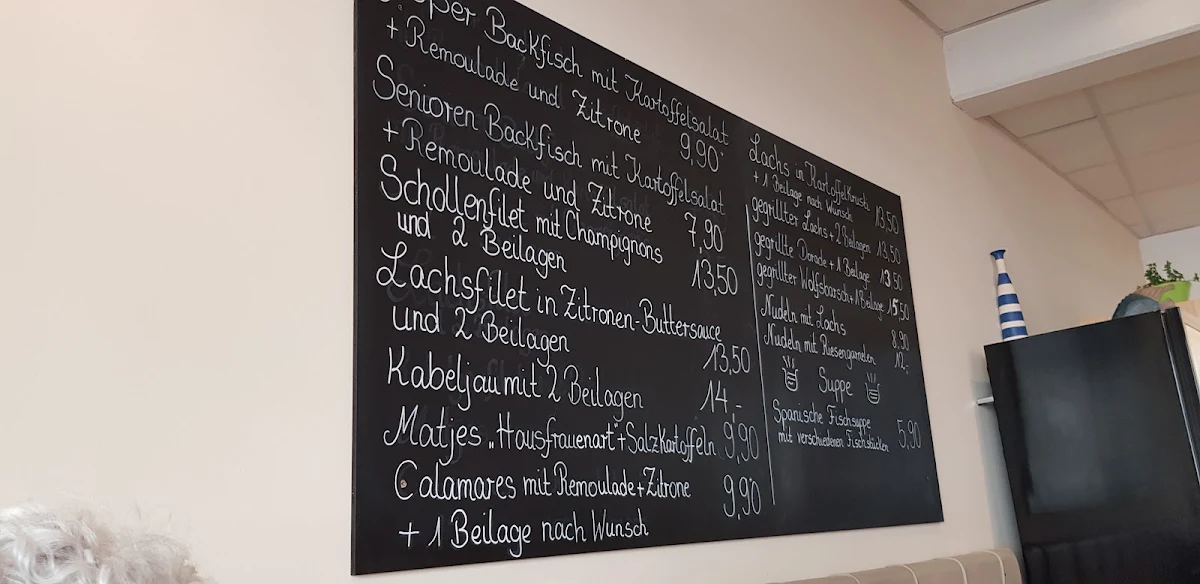 Backfisch mit Kartoffelsalat
+ Remoulade und Zitrone 9,90
Senioren Backfisch mit Kartoffelsalat
+ Remoulade und Zitrone 7,90
Schollenfilet mit Champignons
und 2 Beilagen 13,50
Lachsfilet in Zitronen-Buttersauce
und 2 Beilagen 13,50
Kabeljau mit 2 Beilagen 14,-
Matjes „Hausfrauenart"+Salzkartoffeln 9,90
Calamares mit Remoulade+Zitrone 9,90
+ 1 Beilage nach Wunsch
Lachs in Kartoffelkruste
+ 1 Beilage nach Wunsch 13,50
gegrillter Lachs + 2 Beilagen 13,50
gegrillte Dorade + 1 Beilage 13,50
gegrillter Wolfsbarsch + 1 Beilage 15,50
Nudeln mit Lachs 8,90
Nudeln mit Riesengarnelen 12,-
Suppe
Spanische Fischsuppe
mit verschiedenen Fischstücken 5,90